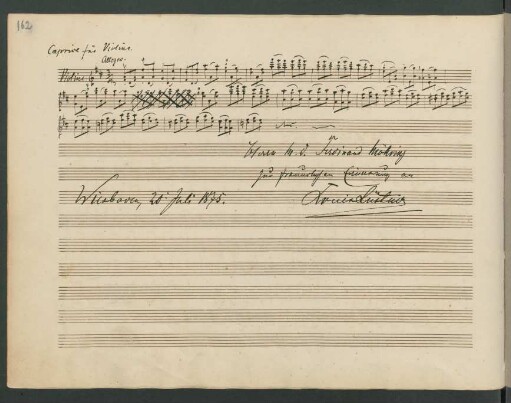 162
Caprice für Violine.
Allegro.
Violine
Herrn M. D. Ferdinand Möhring
zur freundlichen Erinnerung an
Wiesbaden, 20 Juli 1875. Louis Lüstner